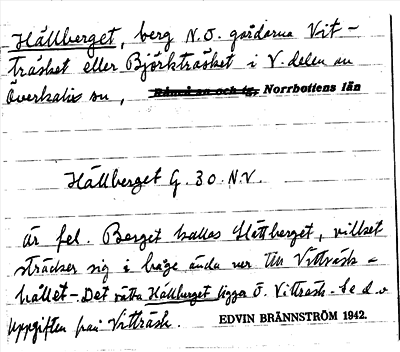 Hällberget, berg N.O. gårdarna Vit-
träsket eller Björkträsket i V. delen av
Överkalix sn, Råneå sn och tg, Norrbottens län
Hällberget G. 30. N.V.
är fel. Berget kallas Slättberget, vilket
sträcker sig i båge ända ner till Vitträsk-
hållet - Det rätta Hällberget ligger Ö. Vitträsk - se d.o
Uppgiften från Vitträsk. EDVIN BRÄNNSTRÖM 1942.